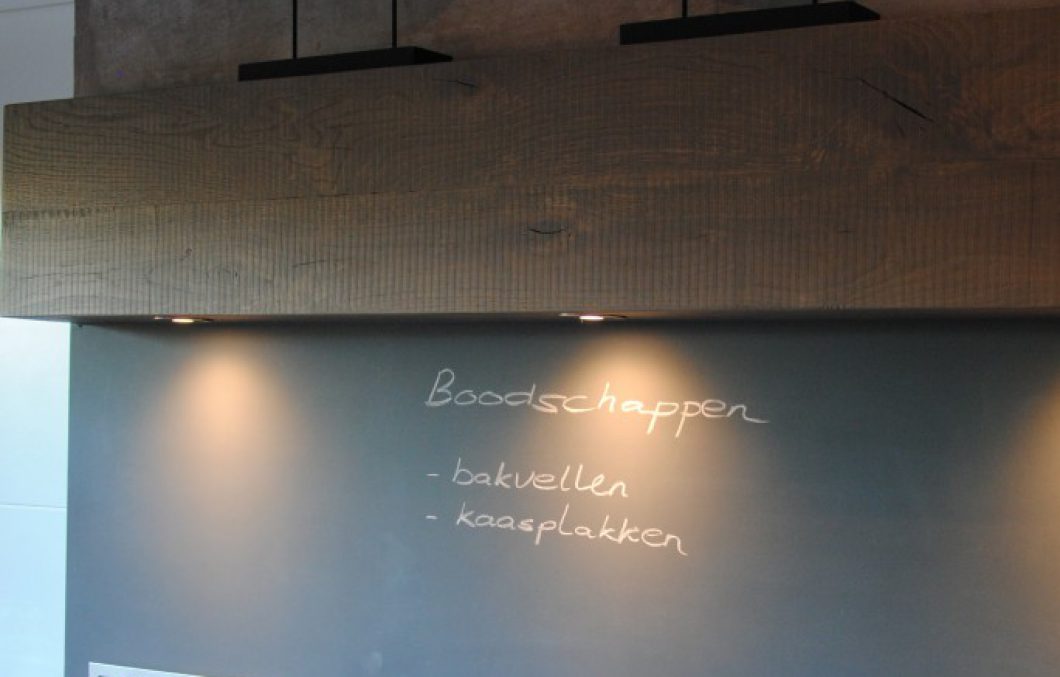 Boodschappen
- bakvellen
- kaasplakken